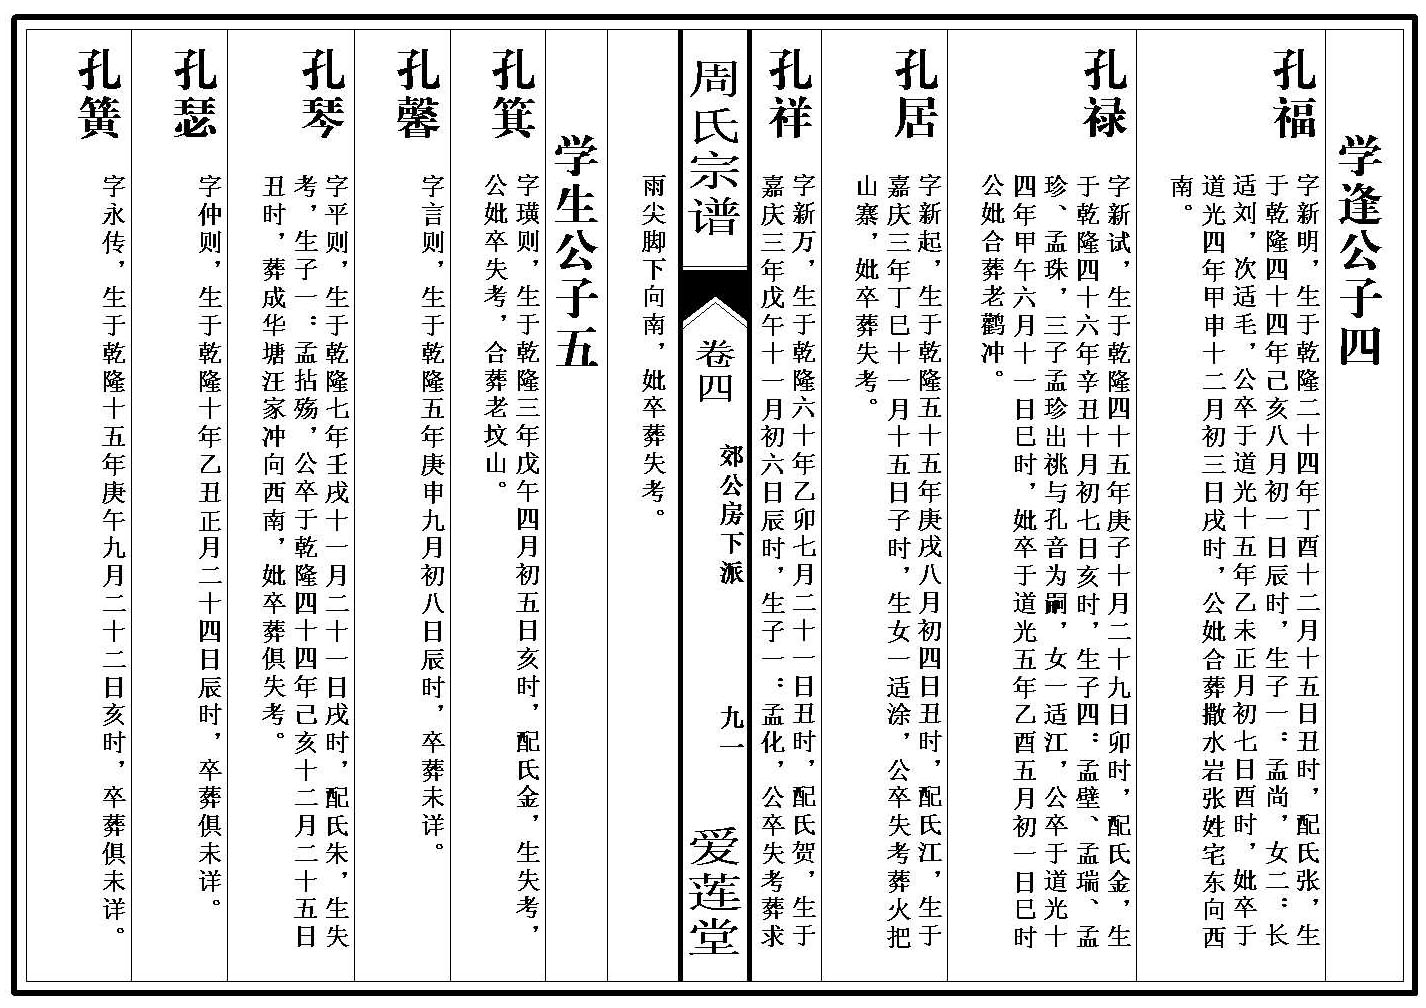 学逢公子四
孔福
字新明，生于乾隆二十四年丁酉十二月十五日丑时，配氏张，生
于乾隆四十四年己亥八月初一日辰时，生子一：孟尚，女二：长
适刘，次适毛，公卒于道光十五年乙未正月初七日酉时，妣卒于
道光四年甲申十二月初三日戌时，公妣合葬撒水岩张姓宅东向西
南。
孔禄
字新试，生于乾隆四十五年庚子十月二十九日卯时，配氏金，生
于乾隆四十六年辛丑十月初七日亥时，生子四：孟壁、孟瑞、孟
珍、孟珠，三子孟珍出祧与孔音为嗣，女一适江，公卒于道光十
四年甲午六月十一日巳时，妣卒于道光五年乙酉五月初一日巳时
公妣合葬老鹳冲。
孔居
字新起，生于乾隆五十五年庚戌八月初四日丑时，配氏江，生于
嘉庆三年丁巳十一月十五日子时，生女一适涂，公卒失考葬火把
山寨，妣卒葬失考。
孔祥
字新万，生于乾隆六十年乙卯七月二十一日丑时，配氏贺，生于
嘉庆三年戊午十一月初六日辰时，生子一：孟化，公卒失考葬求
周氏宗谱
卷四
郊公房下派
九一
爱莲堂
雨尖脚下向南，妣卒葬失考。
学生公子五
孔箕
字璜则，生于乾隆三年戊午四月初五日亥时，配氏金，生失考，
公妣卒失考，合葬老坟山。
孔馨
字言则，生于乾隆五年庚申九月初八日辰时，卒葬未详。
孔琴
字平则，生于乾隆七年壬戌十一月二十一日戌时，配氏朱，生失
考，生子一：孟拈殇，公卒于乾隆四十四年己亥十二月二十五日
丑时，葬成华塘汪家冲向西南，妣卒葬俱失考。
孔瑟
字仲则，生于乾隆十年乙丑正月二十四日辰时，卒葬俱未详。
孔簧
字永传，生于乾隆十五年庚午九月二十二日亥时，卒葬俱未详。